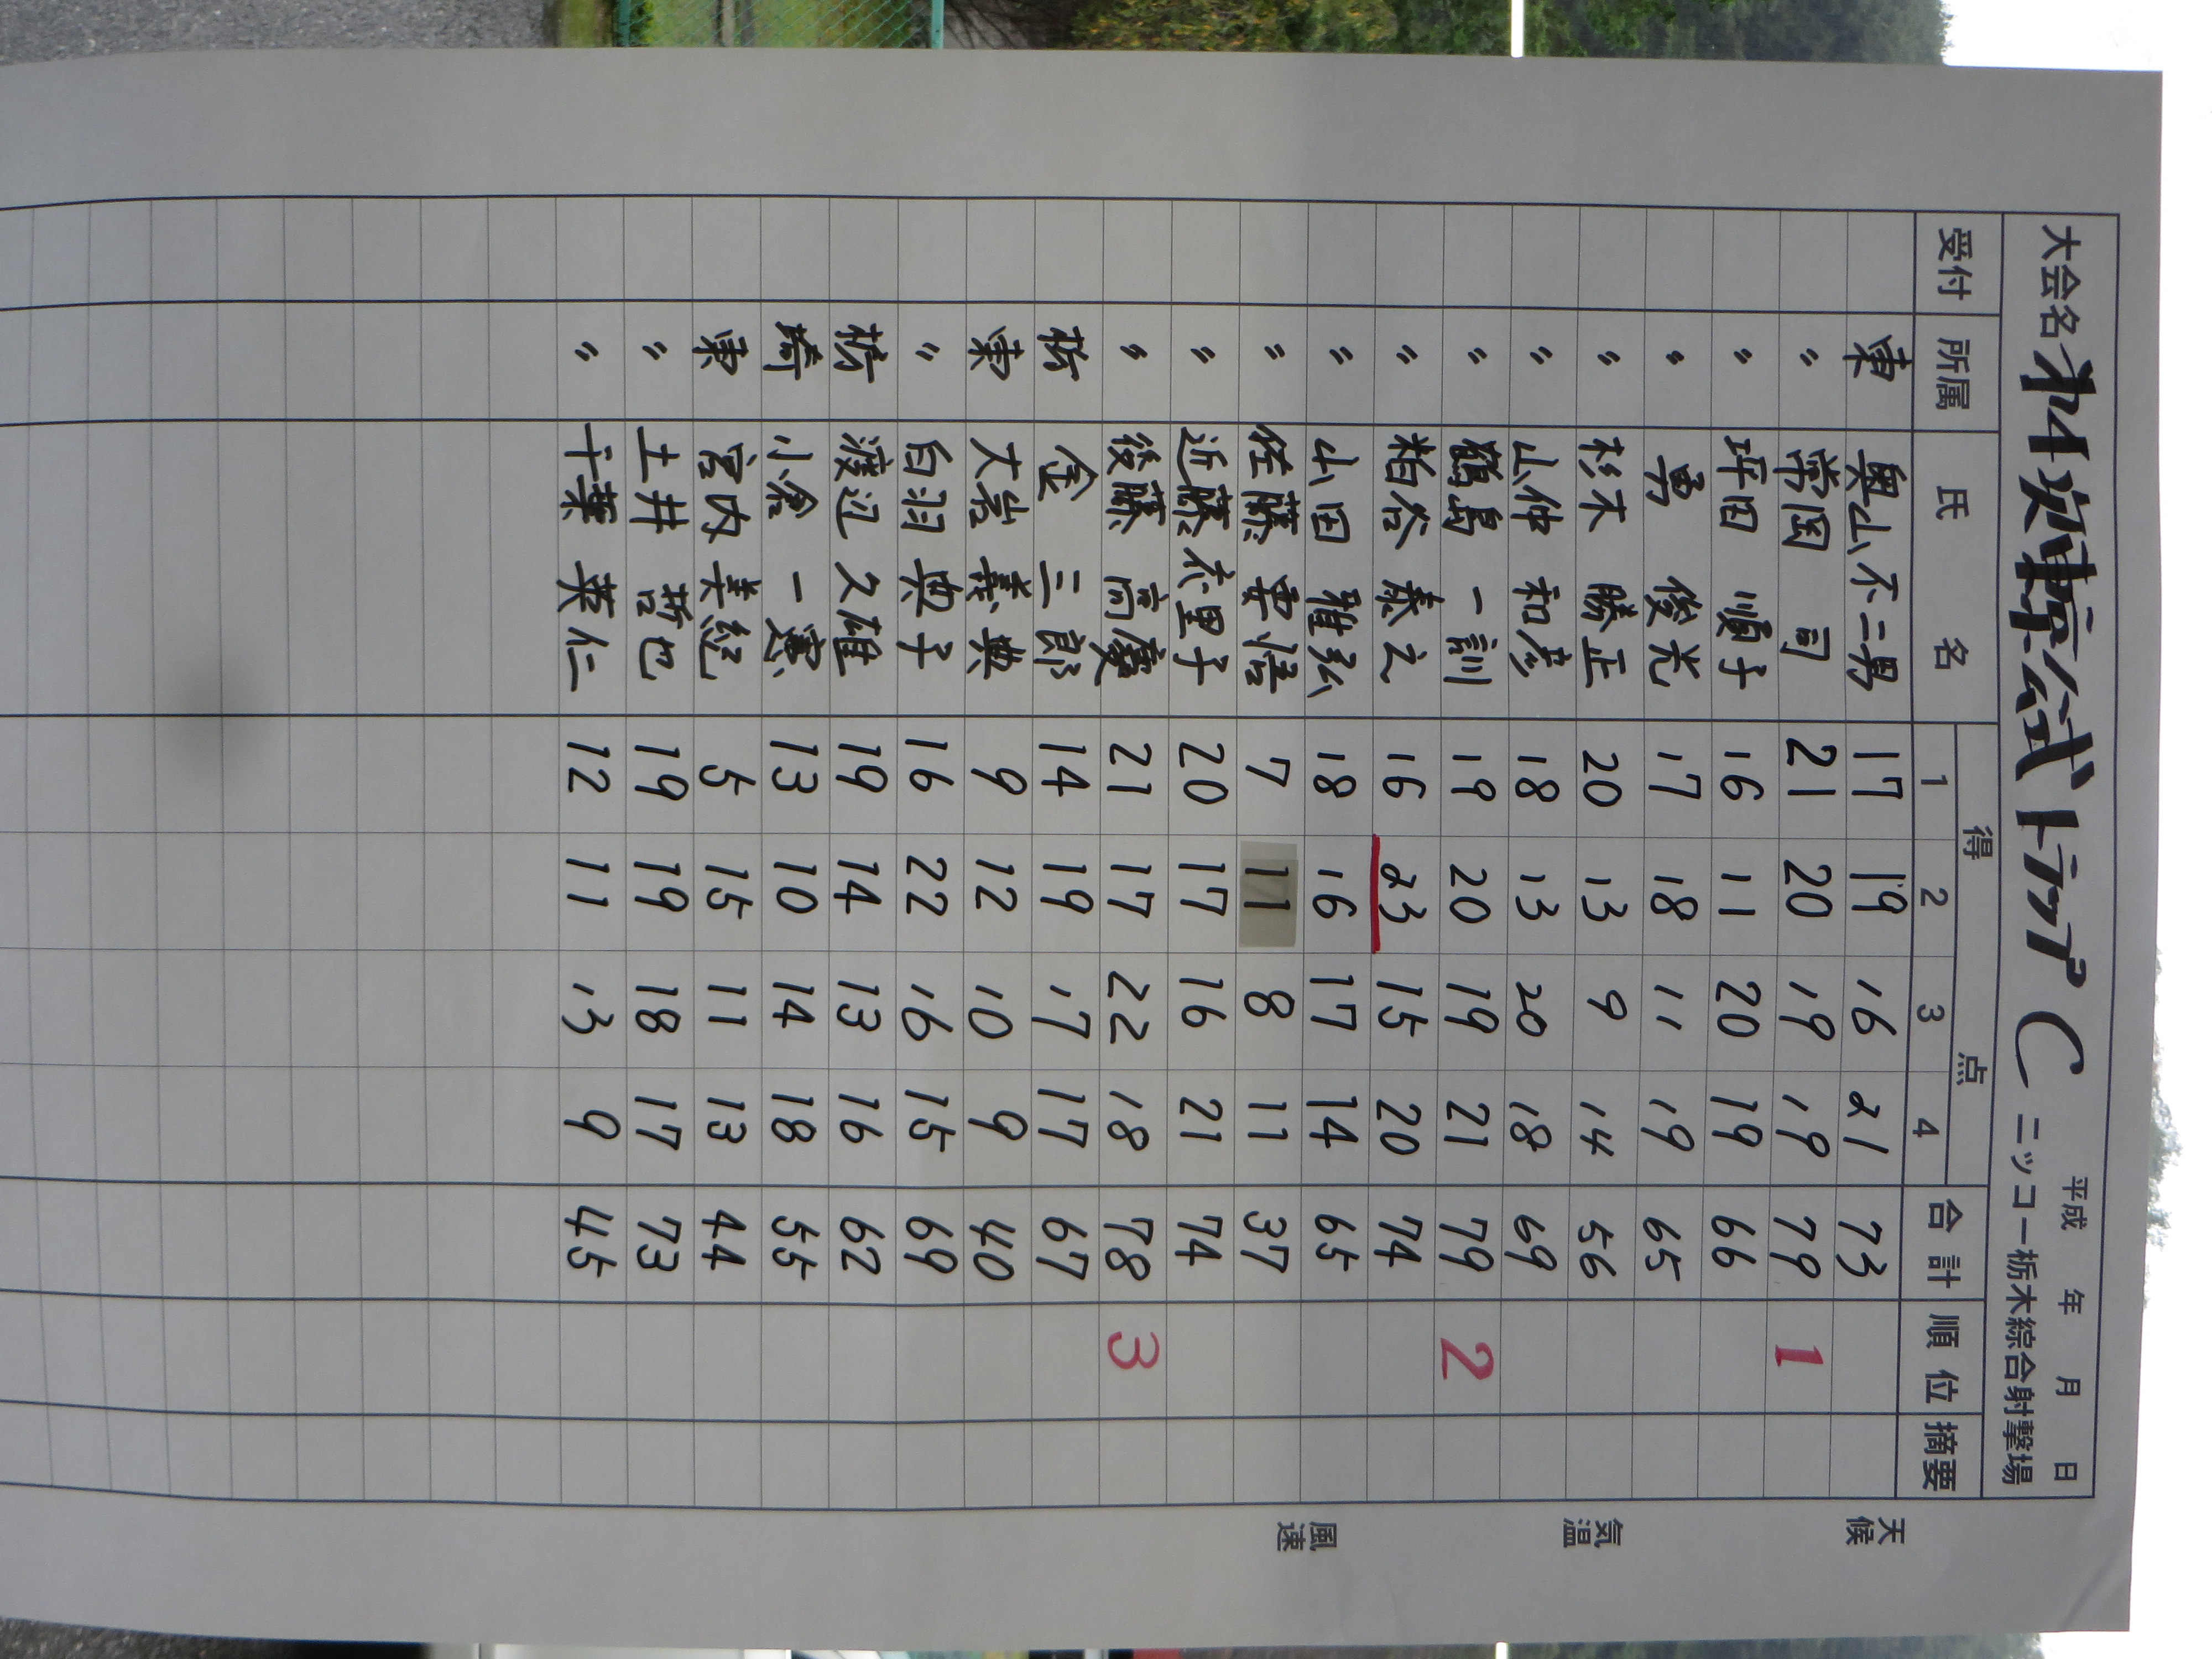 大会名 第4次東京公式トラップ C 平成 年 月 日
ニッコー栃木綜合射撃場
受付 所属 氏 名 得 点 合計 順位 摘要
1 2 3 4
東 奥山不二男 17 19 16 21 73
〃 常岡 司 21 20 19 19 79 1
〃 坪田 順子 16 11 20 19 66
〃 勇 俊光 17 18 11 19 65
〃 杉木 勝正 20 13 9 14 56
〃 山仲 和彦 18 13 20 18 69
〃 鶴島 一訓 19 20 19 21 79 2
〃 粕谷 泰之 16 23 15 20 74
〃 山田 雅弘 18 16 17 14 65
〃 佐藤 要悟 7 11 8 11 37
〃 近藤 衣里子 20 17 16 21 74
〃 後藤 高慶 21 17 22 18 78 3
栃 金 三郎 14 19 17 17 67
東 大岩 義典 9 12 10 9 40
〃 白羽 典子 16 22 16 15 69
栃 渡辺 久雄 19 14 13 16 62
埼 小倉 一憲 13 10 14 18 55
東 宮内 美紀 5 15 11 13 44
〃 土井 哲也 19 19 18 17 73
〃 千葉 英仁 12 11 13 9 45
天候
気温
風速